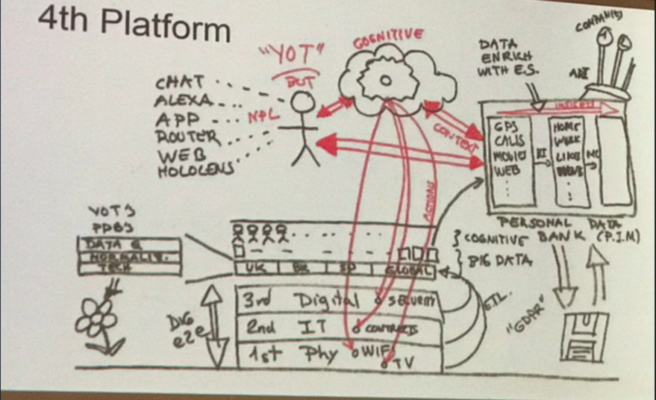 4th Platform
COGNITIVE
"YOT"
BOT
CHAT
ALEXA
APP
ROUTER
WEB
HOLOLENS
NPL
DATA
ENRICH
WITH E.S.
API
INSIGHT
CONTEXT
GPS
CALLS
MOVIO
WEB
HOME
WORK
LIKES
PERSONAL DATA
BANK (P.I.M)
COGNITIVE
BIG DATA
ACTIONS
YOT'S
DATA &
NORMALIZ.
TECH
UK
BR
SP
GLOBAL
3rd Digital
SECURITY
2nd IT
CONTRACTS
1st Phy
WIFI
TV
DIG
e2e
ETL.
"GDPR"